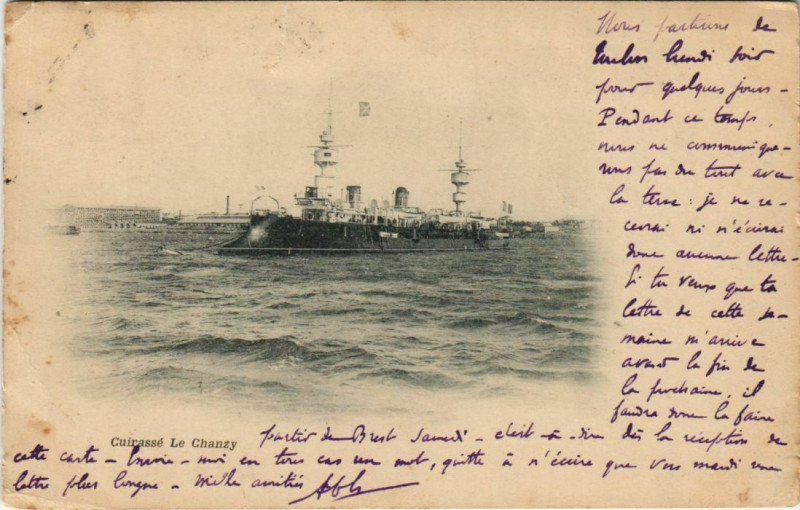 Nous partirons de
Toulon lundi soir
pour quelques jours -
Pendant ce temps,
nous ne communique-
rons pas du tout avec
la terre : je ne re-
cevrai ni n'écrirai
donc aucune lettre -
Si tu veux que ta
lettre de cette se-
maine m'arrive
avant la fin de
la prochaine, il
faudra donc la faire
Cuirassé Le Chanzy
partir de Brest Samedi - c'est-à-dire dès la réception de
cette carte - Envoie-moi en tous cas un mot, quitte à n'écrire que vers mardi une
lettre plus longue - Mille amitiés